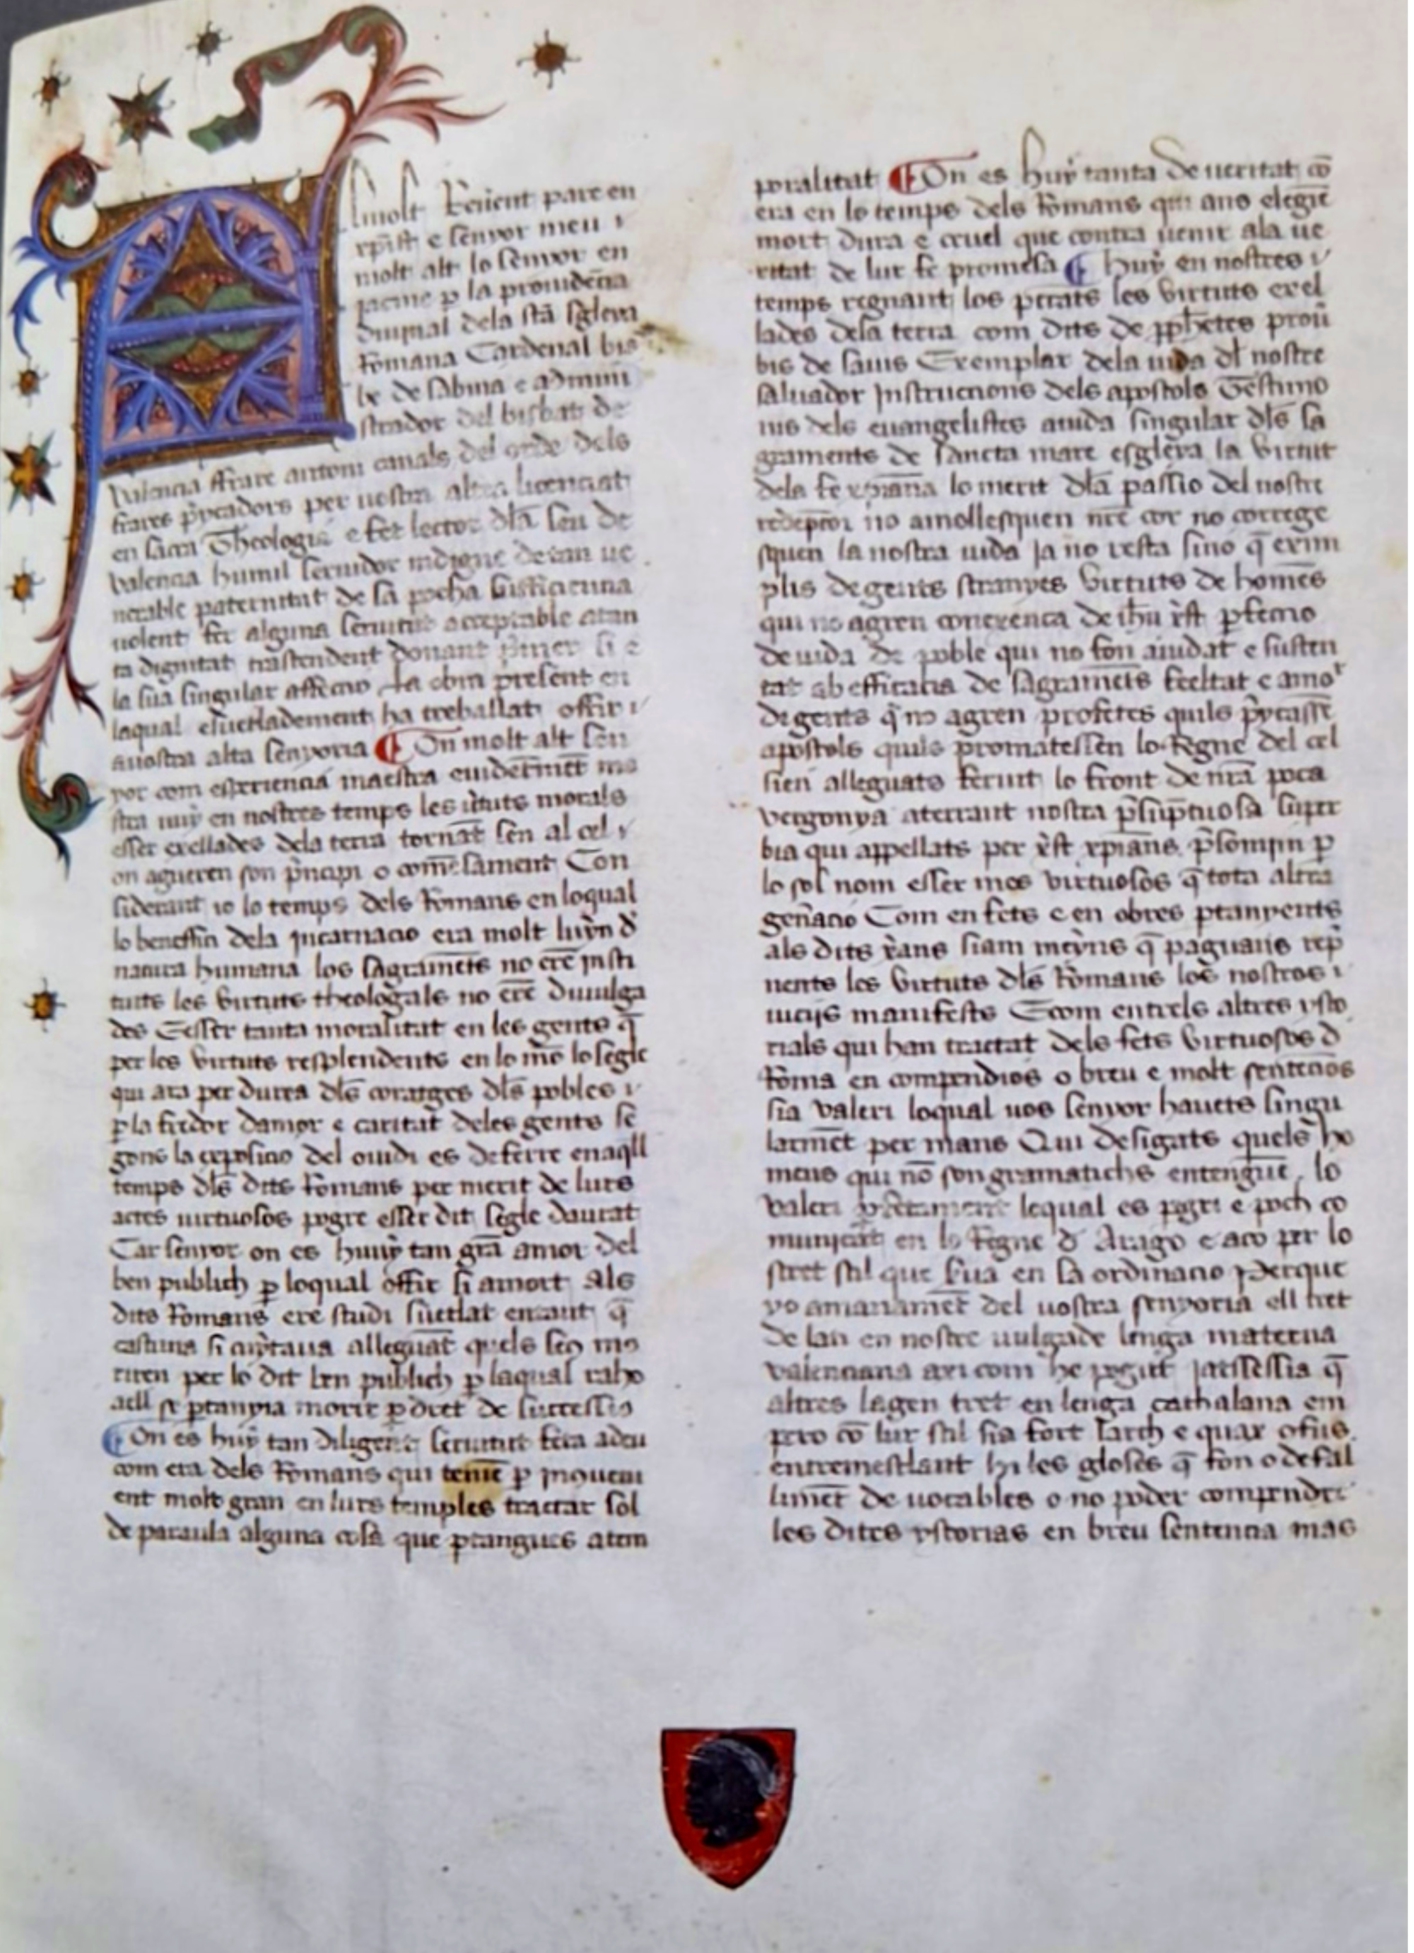 A lmolt Reuerent pare en
xp̅ist e senyor meu i
molt alt lo senyor en
jacme p̲ la prouidẽcia
diuinal dela sta̅ sgleya
Romana Cardenal bis
be de sabina e admini
strador del bisbat de
valencia ffrare antoni canals del orde dels
frares p̅ycadors per uostra alta licenciat
en sacra Theologia e fet lector dla̅ seu de
valencia humil seruidor indigne de tan ue
nerable paternitat de sa̅ pocha sufficiencia
uolent fer alguna seruitut acceptable a tan
ta dignitat trascendent donant si e
la sua singular affeccio la obra present en
laqual esuetladament ha treballat offir i
auostra alta senyoria ¶ On molt alt sen
yor com esperiencia maestra euidẽtmẽt mo
stra uuy en nostres temps les u̅tuts morals
esser exellades dela terra tornãt sen al cel i
on agueren son p̅ncipi o comẽsament Con
siderant io lo temps dels Romans en loqual
lo beneffici dela incarnacio era molt luỹn d̅
natura humana los sagramẽts no erẽ insti
tuits les virtuts theologals no erẽ diuulga
des E esser tanta moralitat en les gents q̅
per les virtuts resplendents en lo mõ lo segle
qui ara per durea dls̅ coratges dls̅ pobles i
p̲ la fredor damor e caritat deles gents se
gons la exposicio del ouidi es de ferre en aq̅ll
temps dls̅ dits Romans per merit de lurs
actes uirtuosos pogre esser dit segle daurat
Car senyor on es huuỹ tan gra̅ amor del
ben publich p̲ loqual offir si a mort Als
dits Romans ere studi suetlat entant q̅
cascuna si cuytaua alleguãt quels seus mo
riren per lo dit ben publich p̲ laqual raho
aell se p̲tanyia morir p̲ dret de succession
¶ On es huỹ tan diligent seruitut feta a deu
com era dels Romans qui teniẽ p̲ inconueni
ent molt gran en lurs temples tractar sol
de paraula alguna cosa que p̲tangues atem
poralitat ¶ On es huỹ tanta de ueritat cõ
era en lo temps dels Romans qui ans elegiẽ
mort dura e cruel que contra uenir ala ue
ritat de lur fe promesa ¶ E huỹ en nostres i
temps regnant los peccats les virtuts exel
lades dela terra com dits de p̲phetes prou̅
bis de sauis Exemplar dela uida dl̅ nostre
saluador Instruccions dels apostols Testimo
nis dels euangelistes auida singular dls̅ sa
graments de sancta mare esgleya la virtut
dela fe xp̅iana lo merit dla̅ passio del nostre
redẽptor no amollesquen nr̅e cor no correge
squen la nostra uida Ja no resta sino q̅ exim
plis de gents stranyes virtuts de homẽs
qui no agren conexenca de ih̅u xs̅t p̲feccio
de uida de poble qui no fon aiudat e susten
tat ab efficacia de sagramẽts feeltat e amor
de gents q̅ no agren profetes quils p̅ycassẽ
apostols quils promatessen lo Regne del cel
sien alleguats ferint lo front de nr̅a poca
vergonya aterrant nostra p̅sũptuosa super
bia qui appellats per xs̅t xp̅ians p̅somim p̲
lo sol nom esser mes virtuosos q̅ tota altra
gen̅acio Com en fets e en obres p̲tanyents
als dits xp̅ans siam menys q̅ paguans rep̅
nents les virtuts dls̅ Romans los nostros i
uicijs manifests E com entrels altres ysto
rials qui han tractat dels fets virtuosos d̅
Roma en compendios o breu e molt sentẽcios
sia valeri loqual uos senyor hauets singu
larmẽt per mans Qui desigats quels ho
mens qui nõ son gramatichs entenguẽ lo
valeri lequal es pogri e poch co
municat en lo Regne d̅ Arago e aco per lo
stret stil que serua en sa ordinacio Perque
yo a manamẽt del uostra senyoria ell tret
de lati en nostre uulgade lenga materna
valenciana axi com he pogut jatssessia q̅
altres lagen tret en lenga cathalana em
pero cõ lur stil sia fort larch e quax ofus
entremesclant hi les gloses q̅ fon o defal
limẽt de uocables o no poder compendre
les dites ystorias en breu sentencia mas